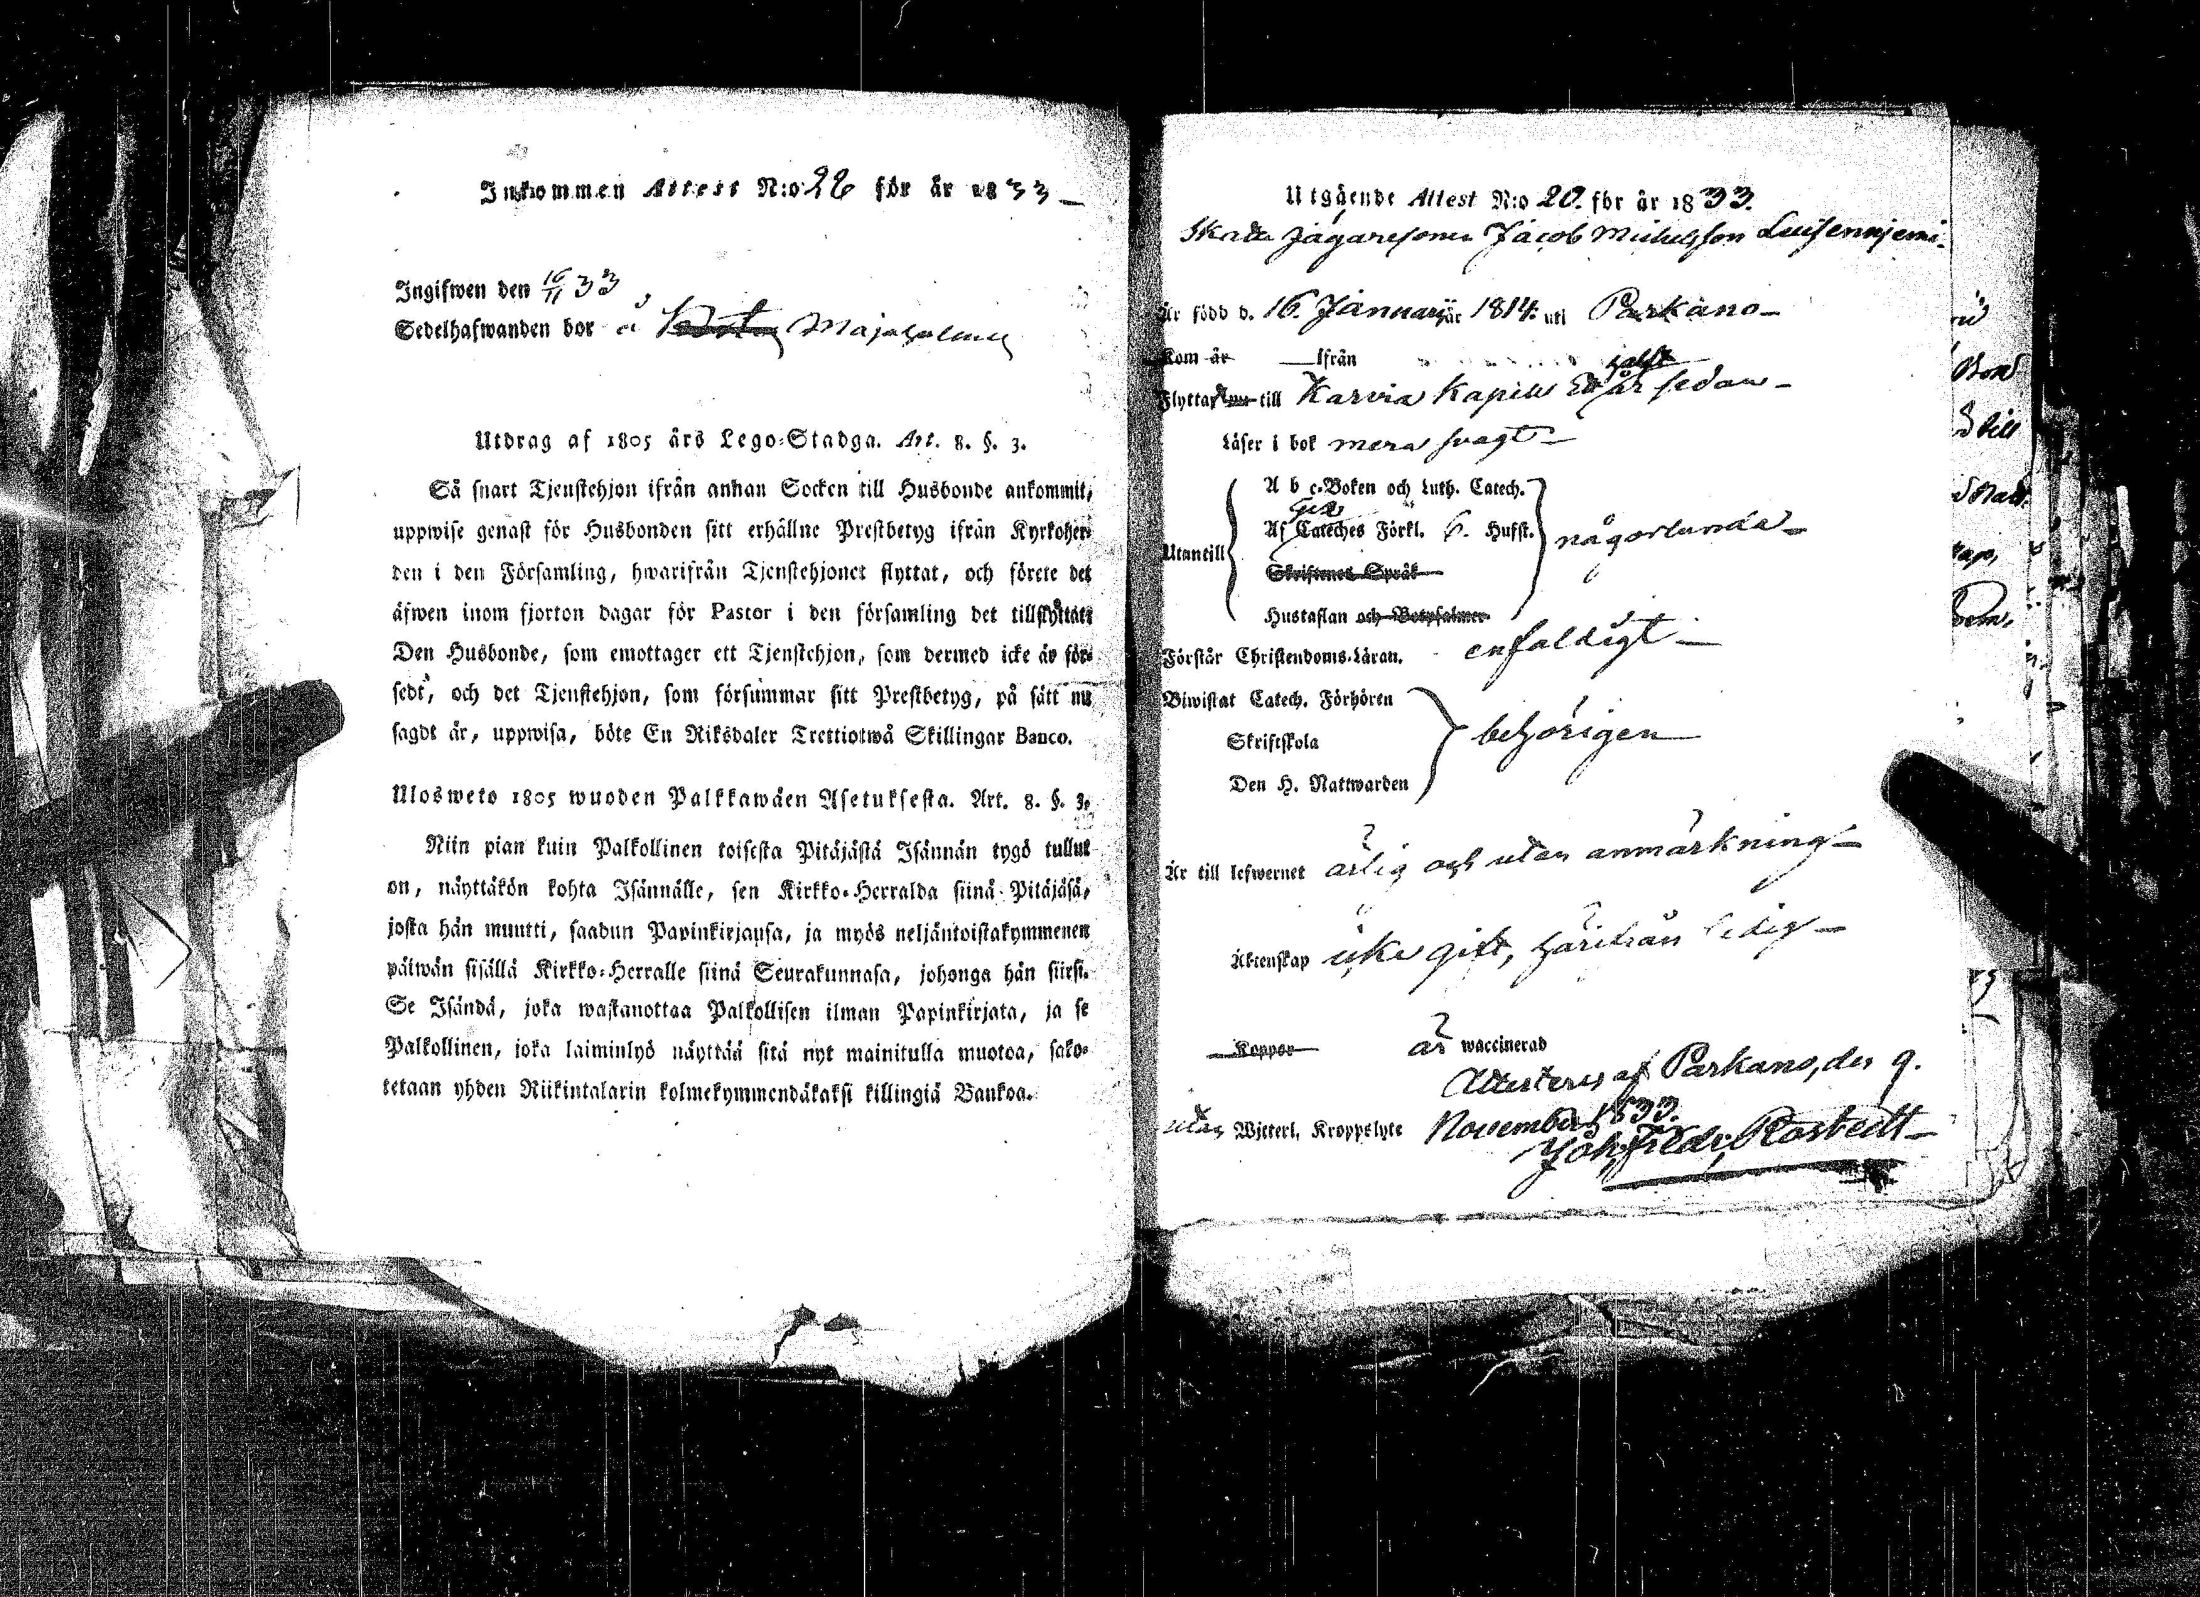 Inkommen Attest N:o 22 för år 1833
Ingifwen den 16/11 33
Sedelhafwanden bor å
Utdrag af 1805 års Lego-Stadga. Art. 8. §. 3.
Så snart Tjenstehjon ifrån annan Socken till Husbonde ankommit,
uppwise genast för Husbonden sitt erhållne Prestbetyg ifrån Kyrkoher-
den i den Församling, hwarifrån Tjenstehjonet flyttat, och förete det
äfwen inom fjorton dagar för Pastor i den församling det tillflyttat.
Den Husbonde, som emottager ett Tjenstehjon, som dermed icke är för-
sedt, och det Tjenstehjon, som försummar sitt Prestbetyg, på sätt nu
sagdt är, uppwisa, böte En Riksdaler Trettiotwå Skillingar Banco.
Ulosweto 1805 wuoden Palkkawäen Asetuksesta. Art. 8. §. 3.
Niin pian kuin Palkollinen toisesta Pitäjästä Isännän tygö tullut
on, näyttäkön kohta Isännälle, sen Kirkko-Herralda siinä Pitäjäsä,
josta hän muutti, saadun Papinkirjansa, ja myös neljäntoistakymmenen
päiwän sisällä Kirkko-Herralle siinä Seurakunnasa, johonga hän siirsi.
Se Isändä, joka wastanottaa Palkollisen ilman Papinkirjata, ja se
Palkollinen, joka laiminlyö näyttää sitä nyt mainitulla muotoa, sako-
tetaan yhden Riikintalarin kolmekymmendäkaksi killingiä Bankoa.
Utgående Attest N:o 20. för år 1833.
Skade Jägaresonen Jacob Michelsson
Är född d. 16. Januarii år 1814. uti Parkano
Kom år ifrån
Flyttar till Karvia Kapell år sedan
Läser i bok mera svagt
A b c-Boken och Luth. Catech.
Af Cateches Förkl. 6. Hufst. någorlunda
Utantill
Skriftenes Språk
Hustaflan och Botpsalmer
Förstår Christendoms-Läran. enfaldigt
Biwistat Catech. Förhören
Skriftskola behörigen
Den H. Nattwarden
Är till lefwernet ärlig och utan anmärkning
Äktenskap icke gift, härifrån ledig
Koppor är vaccinerad
Attesteras af Parkano, den 9.
utan Witterl. Kroppslyte November 1833.
Joh. Fredr. Rostedt